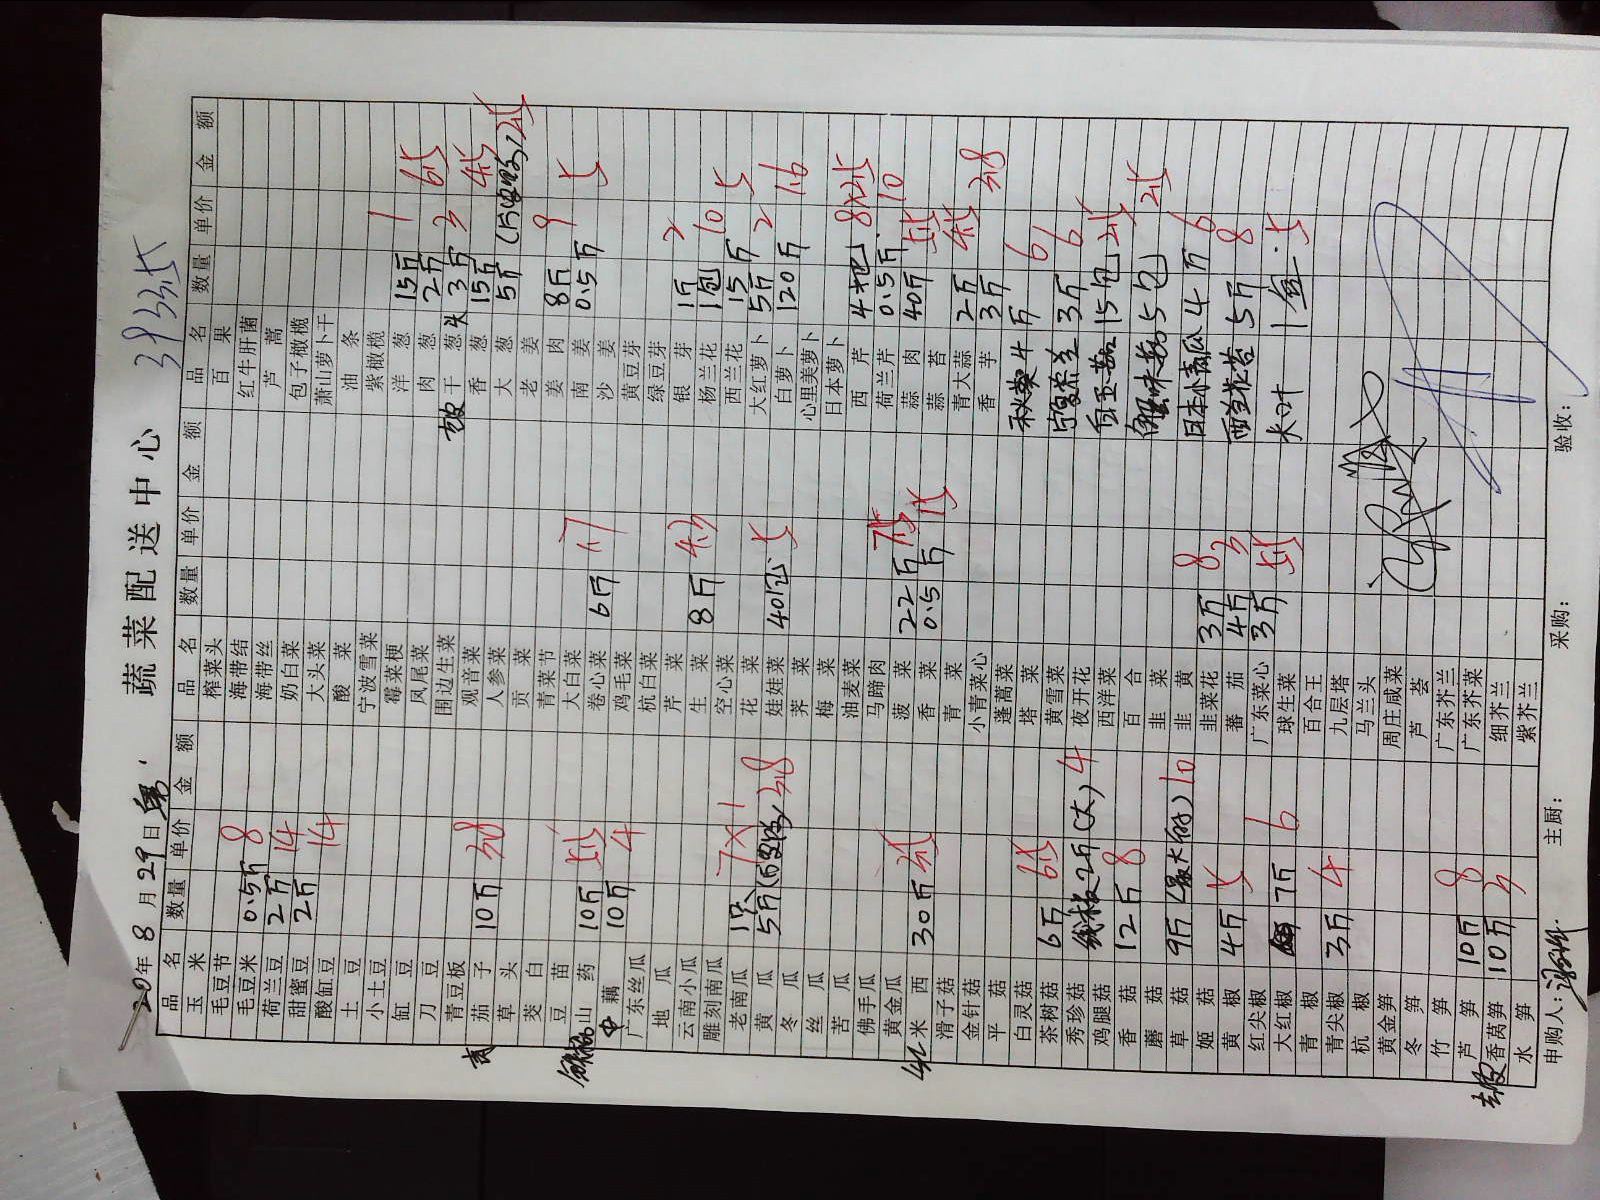 蔬菜配送中心 3933.5
20年8月29日
品名 数量 单价 金额
玉米
毛豆节
毛豆米 0.5斤 8
荷兰豆 2斤 14
甜蜜豆 2斤 14
酸缸豆
土豆
小土豆
缸豆
刀豆
青豆板
茄子 10斤 3.8
草头
茭白
豆苗
山药 10斤 5.5
藕 10斤 4
广东丝瓜
地瓜
云南小瓜
雕刻南瓜
老南瓜 1只 7×1
黄瓜 5斤 3.8
冬瓜
丝瓜
苦瓜
佛手瓜
黄金瓜
米西 30斤 3.5
滑子菇
金针菇
平菇
白灵菇
茶树菇 6斤 6.5
秀珍菇 2斤(大) 4
鸡腿菇
香菇 12斤 8
蘑菇
草菇 9斤(最大的) 10
姬菇
黄椒 4斤 5
红尖椒
大红椒 7斤 6
青椒
青尖椒 3斤 4
杭椒
黄金笋
冬笋
竹笋
芦笋 10斤 8
去皮香莴笋 10斤 3
水笋
品名 数量 单价 金额
榨菜头
海带结
海带丝
奶白菜
大头菜
酸菜
宁波雪菜
霉菜梗
凤尾菜
围边生菜
观音菜
人参菜
贡菜
青菜节
大白菜
卷心菜 6斤 1.7
鸡毛菜
杭白菜
芹菜
生菜 8斤 4.3
空心菜
花菜
娃娃菜 40包 5
荠菜
梅菜
油麦菜
马蹄肉
菠菜 22斤 7.5
香菜 0.5斤 15
青菜
小青菜心
蓬蒿菜
塔菜
黄雪菜
夜开花
西洋菜
百合
韭菜
韭黄
韭菜花 3斤 8
蕃茄 4斤 3
广东菜心 3斤 5.5
球生菜
百合王
九层塔
马兰头
周庄咸菜
芦荟
广东芥兰
广东芥菜
细芥兰
紫芥兰
品名 数量 单价 金额
百果
红牛肝菌
芦蒿
包子橄榄
萧山萝卜干
油条
紫橄榄
洋葱 15斤 1
肉葱 2斤 6.5
干葱头 3斤 3
香葱 15斤 4.5
大葱 5斤 2.5
老姜
姜肉 8斤 9
南姜 0.5斤 5
沙姜
黄豆芽
绿豆芽
银芽 1斤 2
杨兰花 1包 10
西兰花 15斤 5
大红萝卜 5斤 2
白萝卜 120斤 1.6
心里美萝卜
日本萝卜
西芹 4把 8×2.5
荷兰芹 0.5斤 10
蒜肉 40斤 5.5
蒜苔
青大蒜 2斤 4.5
香芋 3斤 3.8
秋葵 斤 6
3斤 6
白玉菇 15包 2.5
蟹味菇 5包 2.5
日本小青瓜 4斤 6
5斤 8
大叶 1盒 5
申购人:
主厨:
采购:
验收: